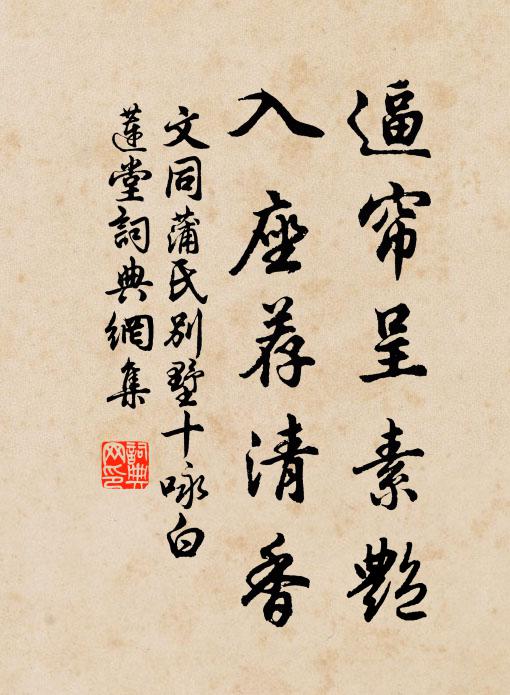 逼帘呈素艷
入座荐清香
文同蒲氏别墅十咏白
蓮堂詞典網集
詞典网印